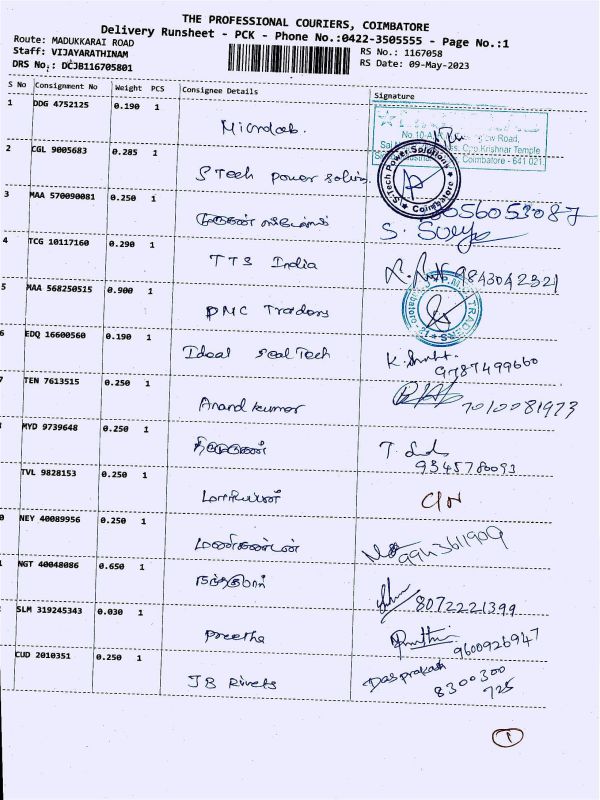 THE PROFESSIONAL COURIERS, COIMBATORE
Delivery Runsheet - PCK - Phone No.:0422-3505555 - Page No.:1
Route: MADUKKARAI ROAD
Staff: VIJAYARATHINAM
DRS No.: DCJB116705801
RS No.: 1167058
RS Date: 09-May-2023
S No Consignment No Weight PCS Consignee Details Signature
1 DDG 4752125 0.190 1 Microlab.
No.10-A
Coimbatore - 641 021
2 CGL 9005683 0.285 1 S Tech power
S-Tech Power Solutions
Coimbatore
3 MAA 570090081 0.250 1 முருகன்
56053087
S. Surya
4 TCG 10117160 0.290 1 TTS India
9843042321
5 MAA 568250515 0.900 1 DMC Traders
TRADERS
6 EDQ 16600560 0.190 1 Ideal Seal Tech
9787499660
7 TEN 7613515 0.250 1 Anand kumar
7010081973
MYD 9739648 0.250 1
T.
9345780093
TVL 9828153 0.250 1 மாரியப்பன்
0 NEY 40089956 0.250 1 மணிகண்டன்
9943611909
NGT 40048086 0.650 1 நந்தகுமார்
8072221399
SLM 319245343 0.030 1 Preetha
9600926947
CUD 2010351 0.250 1 JB Rivets
Dasprakash
8300300
725
1